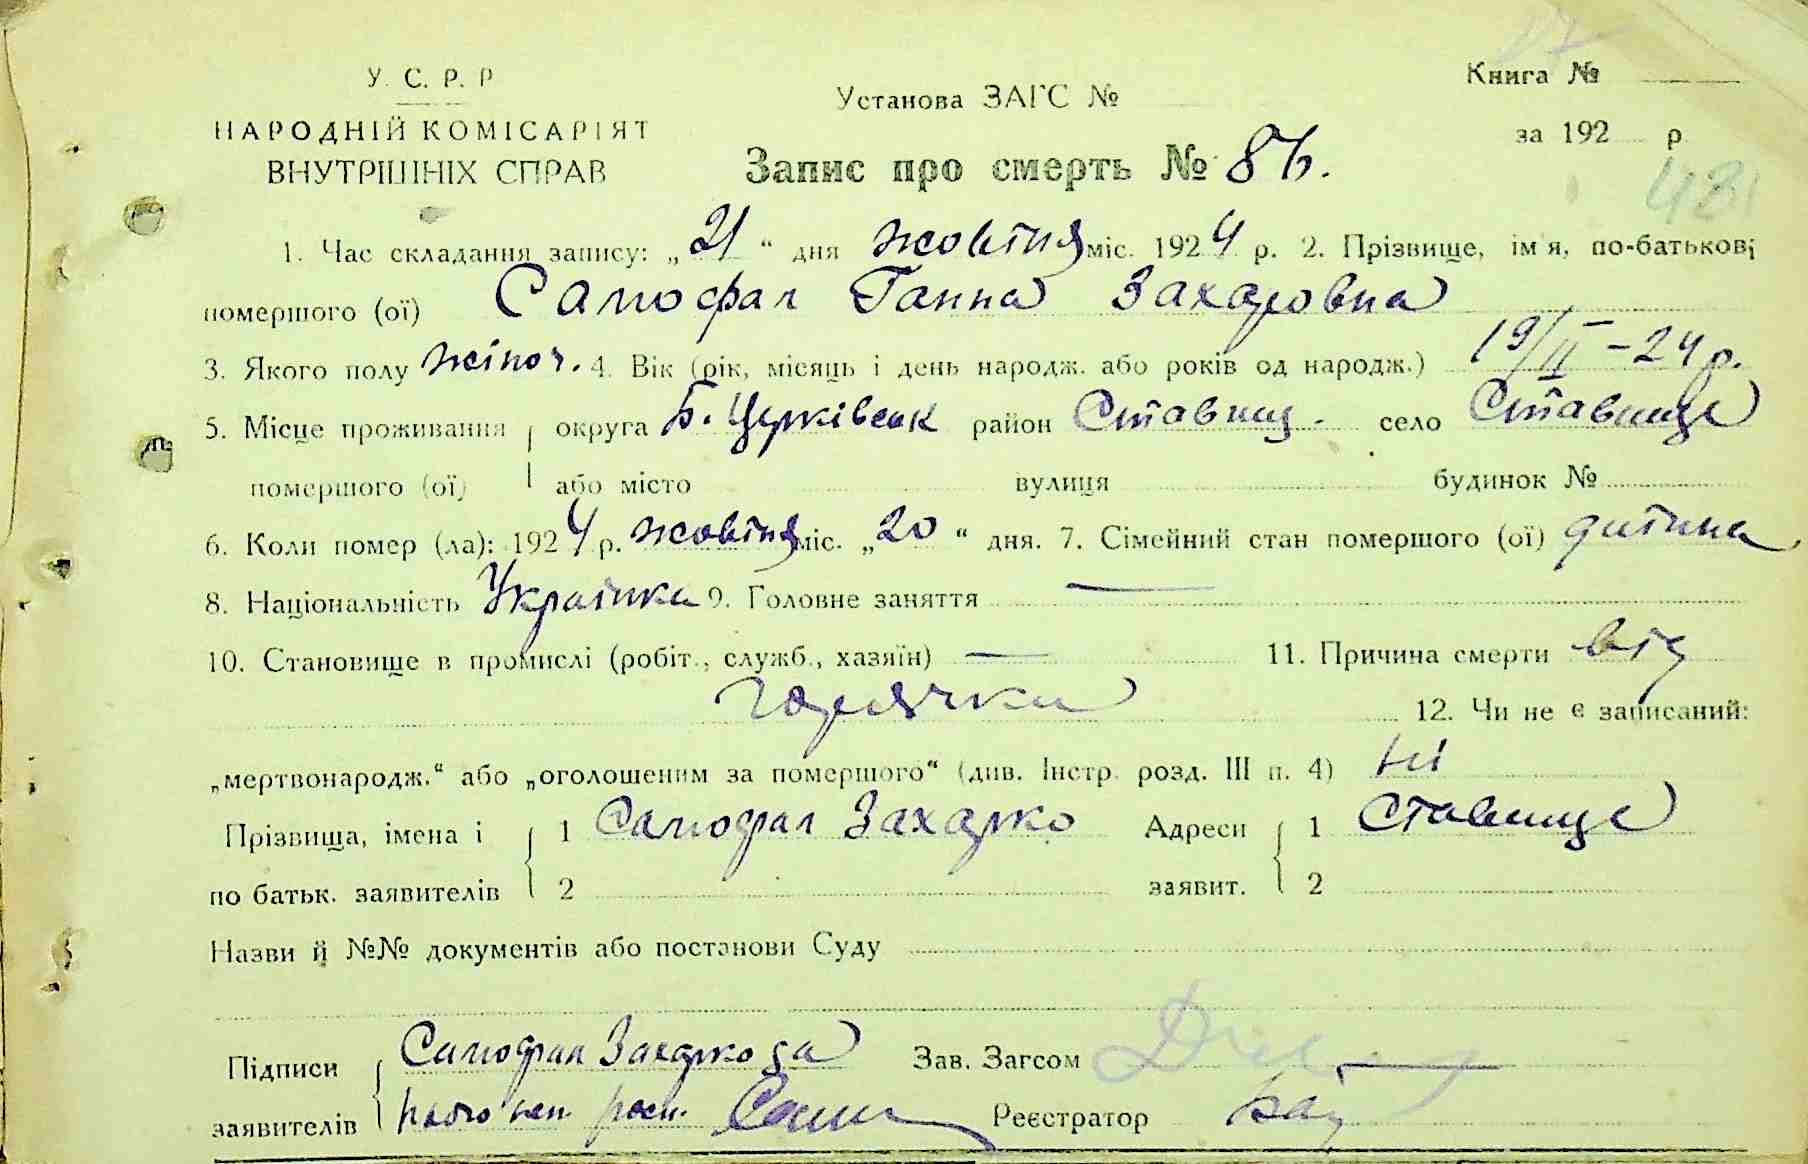 У. С. Р. Р
Книга №
Установа ЗАГС №
НАРОДНІЙ КОМІСАРІЯТ
за 192 р
ВНУТРІШНІХ СПРАВ
Запис про смерть № 86.
481
1. Час складання запису: „21“ дня жовтня міс. 1924 р. 2. Прізвище, ім'я, по-батькові
помершого (ої) Самофал Ганна Захаровна
3. Якого полу жіноч. 4. Вік (рік, місяць і день народж. або років од народж.) 19/II-24 р.
5. Місце проживання округа Б. Церківськ район Ставищ. село Ставище
помершого (ої) або місто вулиця будинок №
6. Коли помер (ла): 1924 р. жовтня міс. „20“ дня. 7. Сімейний стан помершого (ої) дитина
8. Національність Українка 9. Головне заняття —
10. Становище в промислі (робіт., служб., хазяїн) — 11. Причина смерти від
горячки 12. Чи не є записаний:
„мертвонародж.“ або „оголошеним за помершого“ (див. Інстр. розд. III п. 4) ні
Прізвища, імена і 1 Самофал Захарко Адреси 1 Ставище
по батьк. заявителів 2 заявит. 2
Назви й №№ документів або постанови Суду
Підписи Самофал Захарко за Зав. Загсом
заявителів його неп. росп. Реєстратор